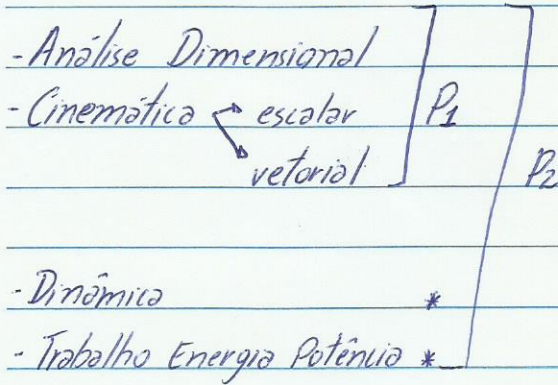 - Análise Dimensional
- Cinemática escalar P1
vetorial P2
- Dinâmica *
- Trabalho Energia Potência *